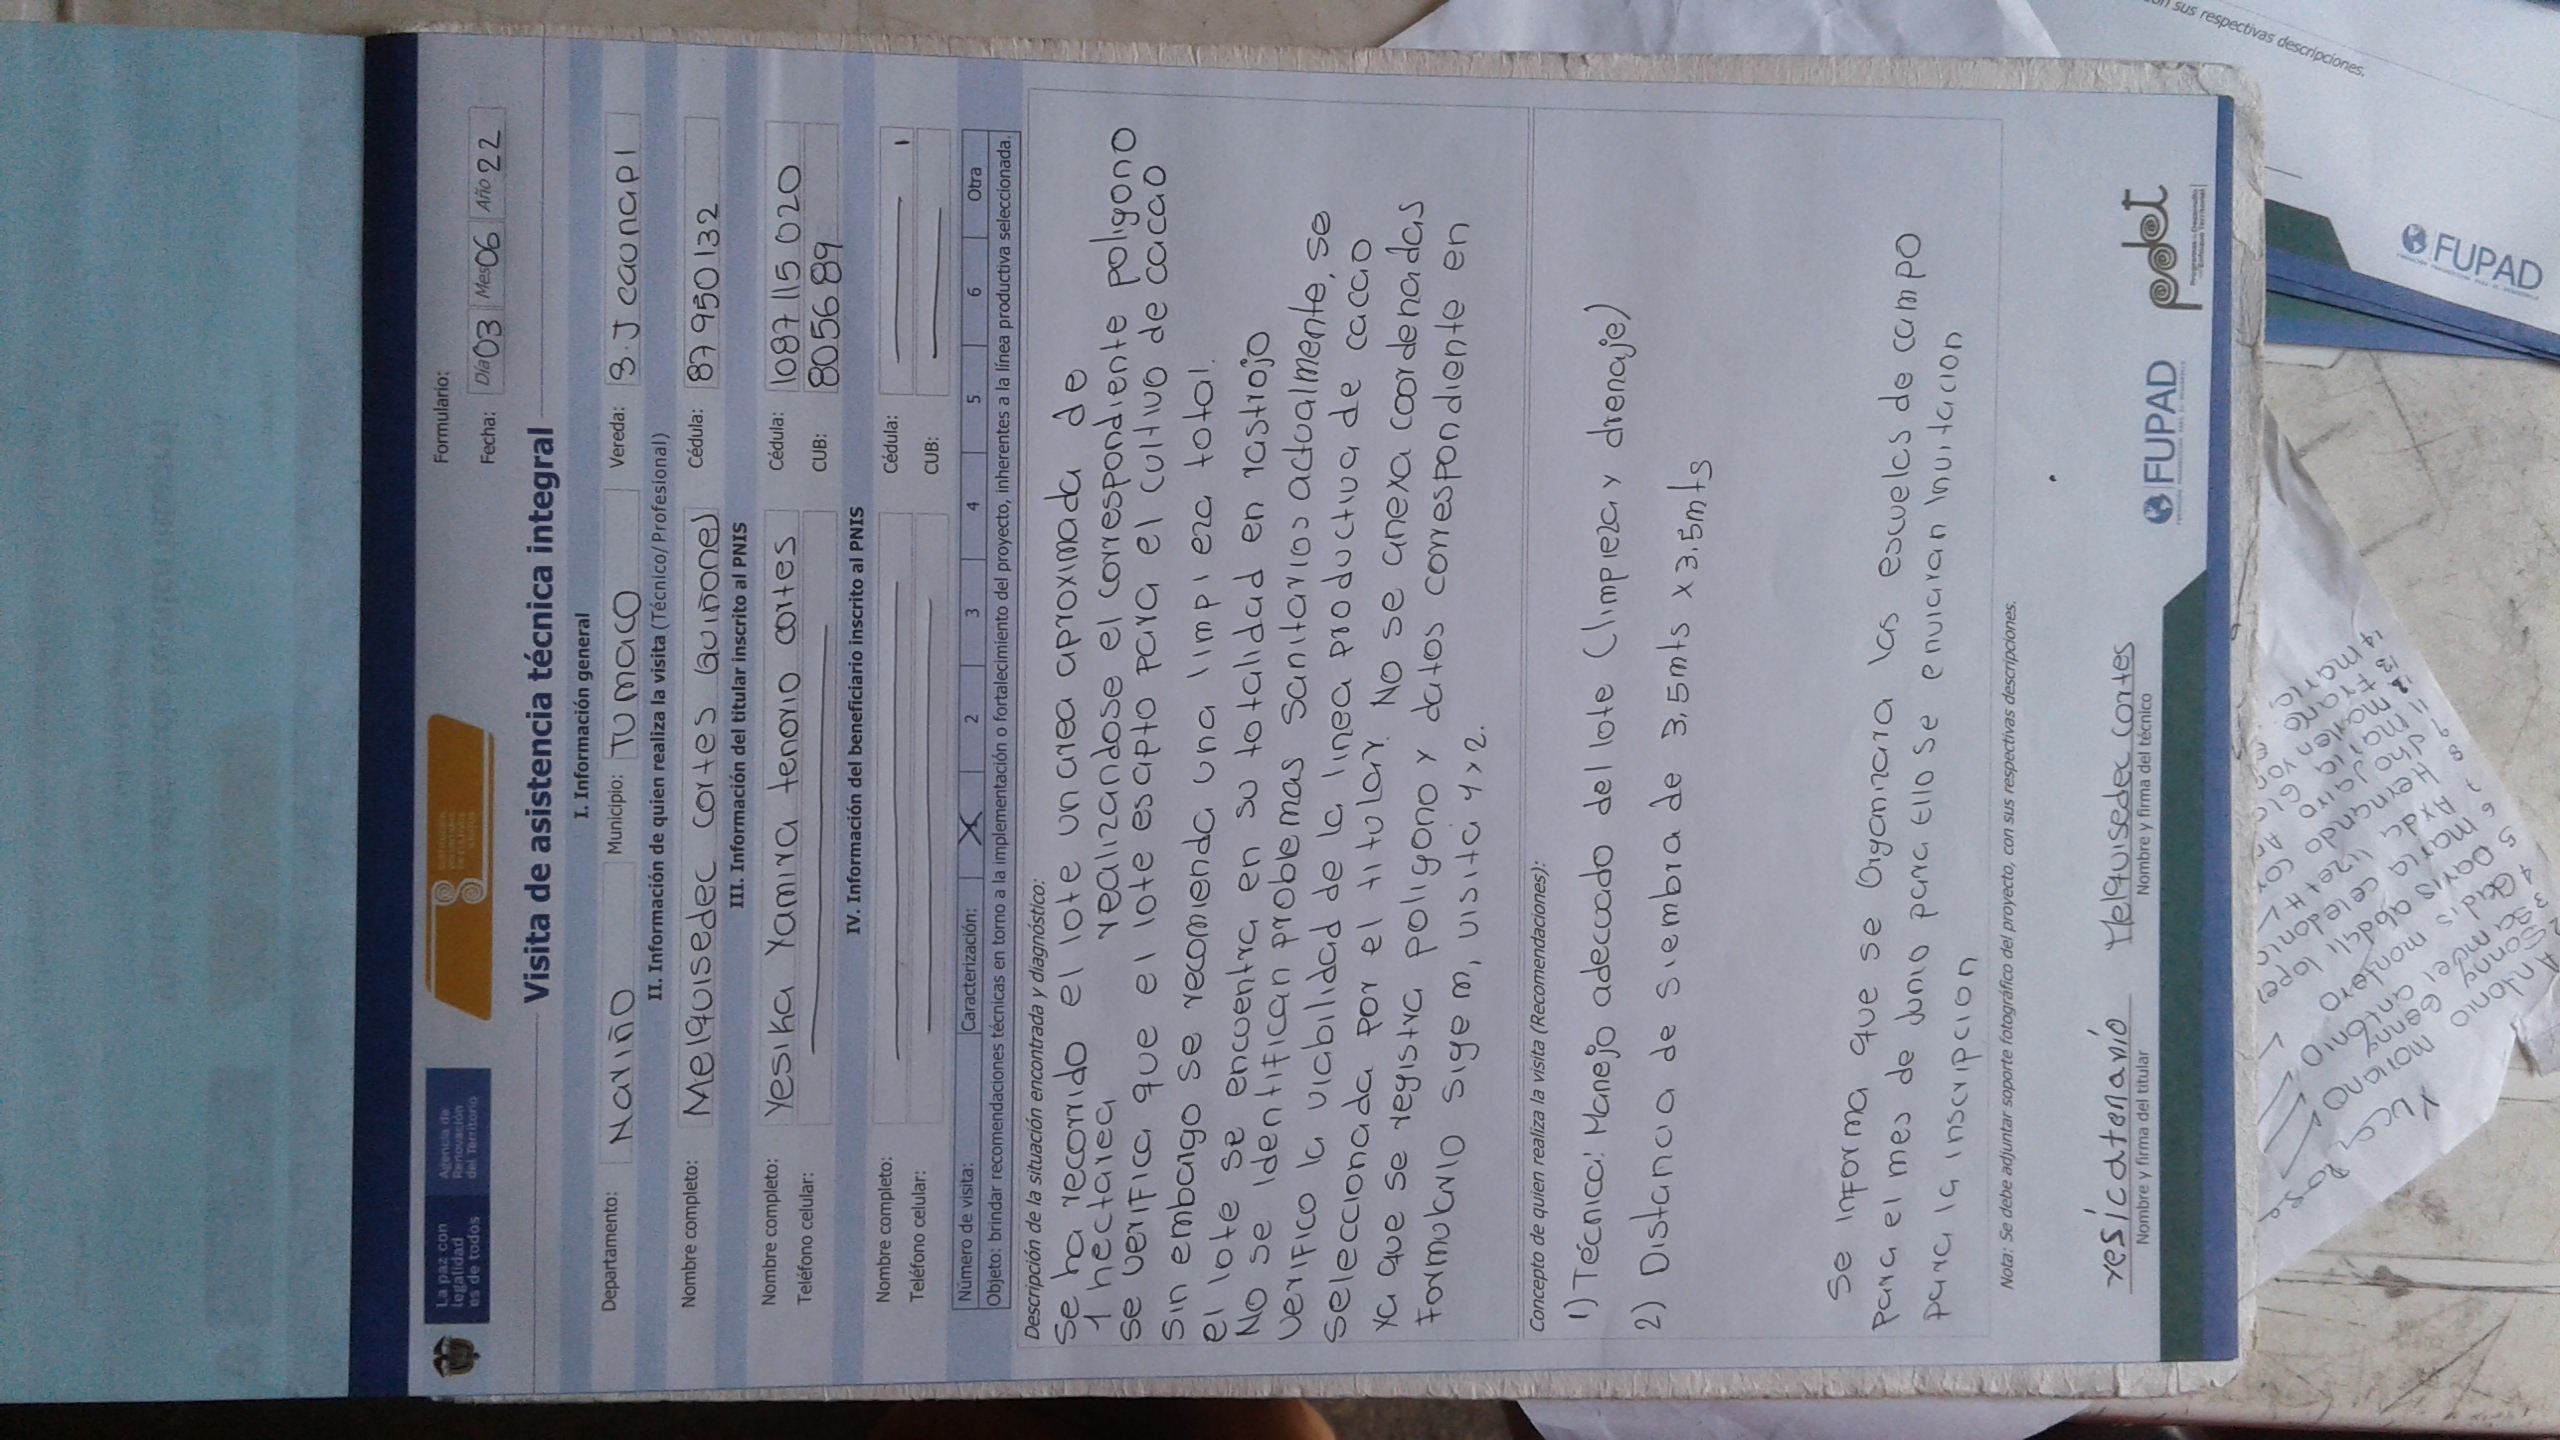 La paz con
legalidad
es de todos
Agencia de
Renovación
del Territorio
Formulario:
Fecha: Día 03 Mes 06 Año 22
Visita de asistencia técnica integral
I. Información general
Departamento: Nariño Municipio: Tumaco Vereda: S.J caunapi
II. Información de quien realiza la visita (Técnico/Profesional)
Nombre completo: Melquisedec cortes Quiñonez Cédula: 87 950 132
III. Información del titular inscrito al PNIS
Nombre completo: Yesika Yamira tenorio cortes Cédula: 1087 115 020
Teléfono celular: CUB: 8056689
IV. Información del beneficiario inscrito al PNIS
Nombre completo: Cédula:
Teléfono celular: CUB:
Número de visita: Caracterización: X 2 3 4 5 6 Otra
Objeto: brindar recomendaciones técnicas en torno a la implementación o fortalecimiento del proyecto, inherentes a la línea productiva seleccionada.
Descripción de la situación encontrada y diagnóstico:
Se ha recorrido el lote un area aproximada de
1 hectarea realizandose el correspondiente poligono
se verifica que el lote es apto para el cultivo de cacao
Sin embargo se recomienda una limpieza total.
el lote se encuentra en su totalidad en rastrojo
No se identifican problemas sanitarios actualmente, se
verifico la viabilidad de la linea productiva de cacao
Seleccionada por el titular. No se anexa coordenadas
ya que se registra poligono y datos correspondiente en
Formulario sigem, visita 1 x 2.
Concepto de quien realiza la visita (Recomendaciones):
1) Técnica: Manejo adecuado del lote (limpieza y drenaje)
2) Distancia de siembra de 3.5mts x 3.5mts
Se informa que se organizara las escuelas de campo
para el mes de Junio para ello se enviaran invitacion
para la inscripcion
Nota: Se debe adjuntar soporte fotográfico del proyecto, con sus respectivas descripciones.
yesicatenario Melquisedec cortes
Nombre y firma del titular Nombre y firma del técnico
FUPAD
pdet
con sus respectivas descripciones.
FUPAD